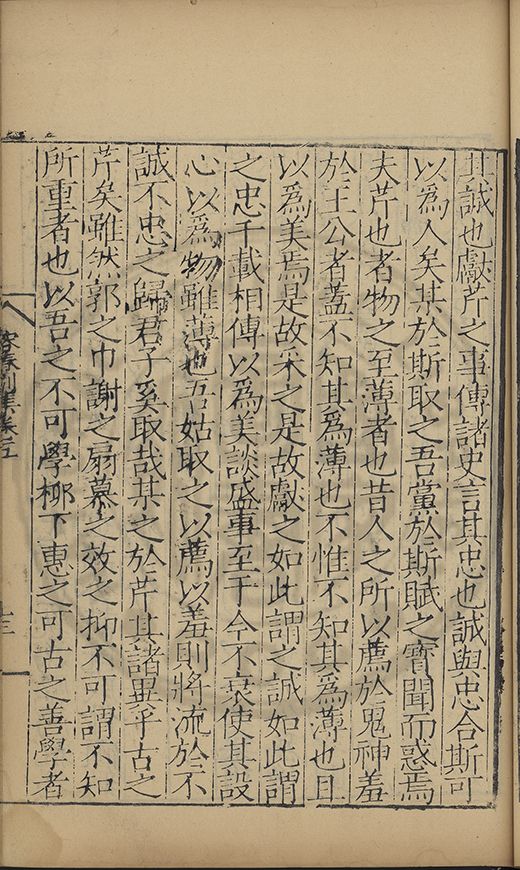 其誠也獻芹之事傳諸史言其忠也誠與忠合斯可
以爲人矣某於斯取之吾黨於斯賦之實聞而惑焉
夫芹也者物之至薄者也昔人之所以薦於鬼神羞
於王公者蓋不知其爲薄也不惟不知其爲薄也且
以爲美焉是故采之是故獻之如此謂之誠如此謂
之忠千載相傳以爲美談盛事至于今不衰使其設
心以爲物雖薄也吾姑取之以薦以羞則將流於不
誠不忠之歸君子奚取哉某之於芹其諸異乎古之
芹矣雖然郭之巾謝之扇慕之效之抑不可謂不知
所重者也以吾之不可學柳下惠之可古之善學者